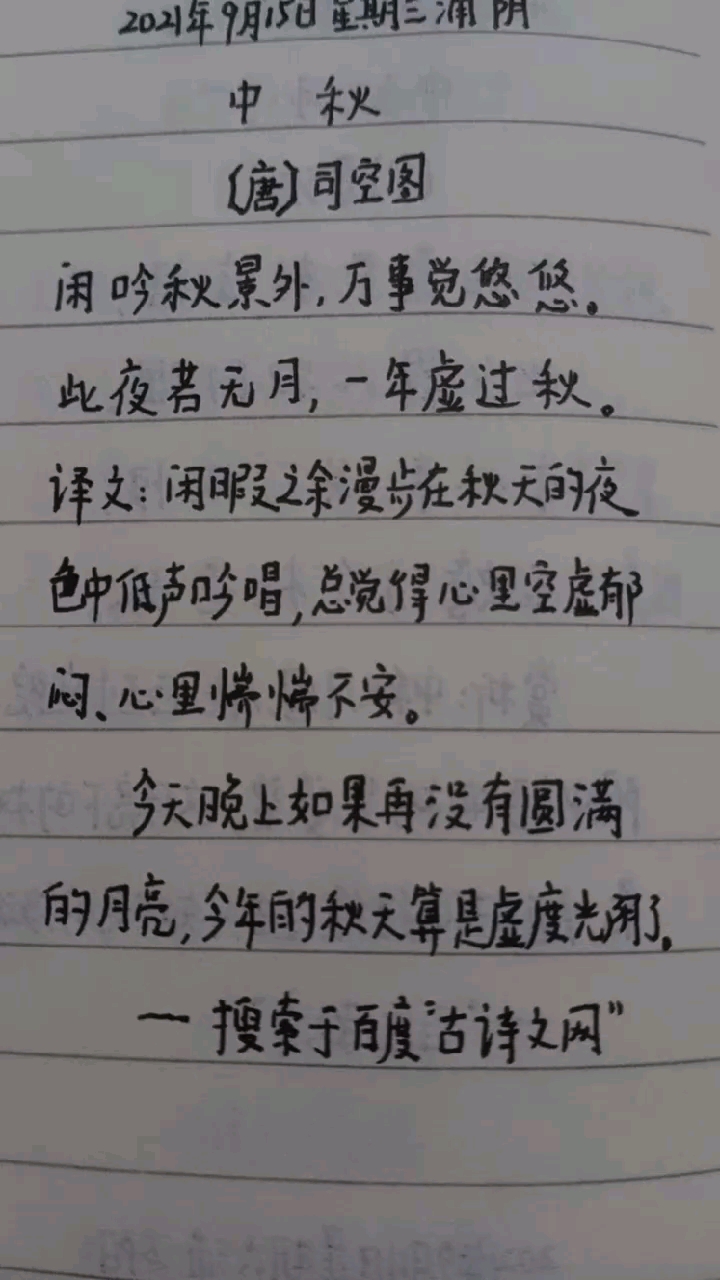 2021年9月15日星期三浦阴
中 秋
〔唐〕司空图
闲吟秋景外，万事觉悠悠。
此夜若无月，一年虚过秋。
译文：闲暇之余漫步在秋天的夜
色中低声吟唱，总觉得心里空虚郁
闷、心里惴惴不安。
今天晚上如果再没有圆满
的月亮，今年的秋天算是虚度光阴了。
— 搜索于百度“古诗文网”